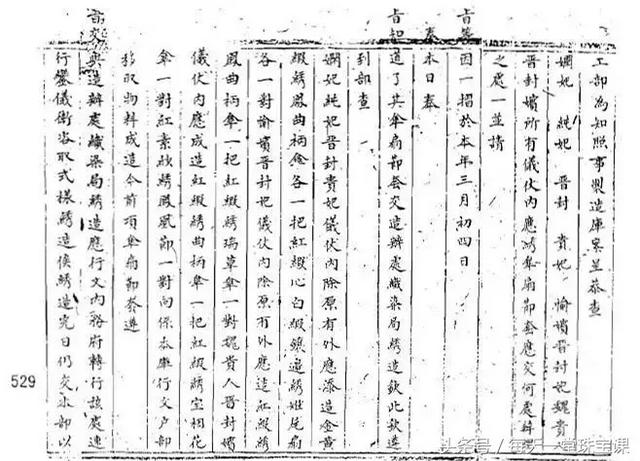 工部為知照事製造庫案呈恭查
嫻妃 純妃 晉封 貴妃 愉嬪晉封妃魏貴
晉封嬪所有儀仗內應繡傘扇節套應交何處辦
之處一並請
旨等因一摺於本年三月初四日
奏本日奉
旨知道了其傘扇節套交造辦處織染局繡造欽此欽遵
到部查
嫻妃純妃晉封貴妃儀仗內除原有外應添造金黃
緞繡鳳曲柄傘各一把紅緞心白緞鑲邊繡雉尾扇
各一對愉嬪晉封妃儀仗內除原有外應造紅緞繡
鳳曲柄傘一把紅緞繡瑞草傘一對魏貴人晉封嬪
儀仗內應成造紅緞繡曲柄傘一把紅緞繡寶相花
傘一對紅素妝繡鳳凰節一對向係本庫行文戶部
移取物料成造今前項傘扇節套遵
旨交與造辦處織染局繡造應行文內務府轉行該處速
行鑾儀衛咨取式樣繡造俟繡造完日仍交本部以
529
头条号 / 每天一堂珠宝课